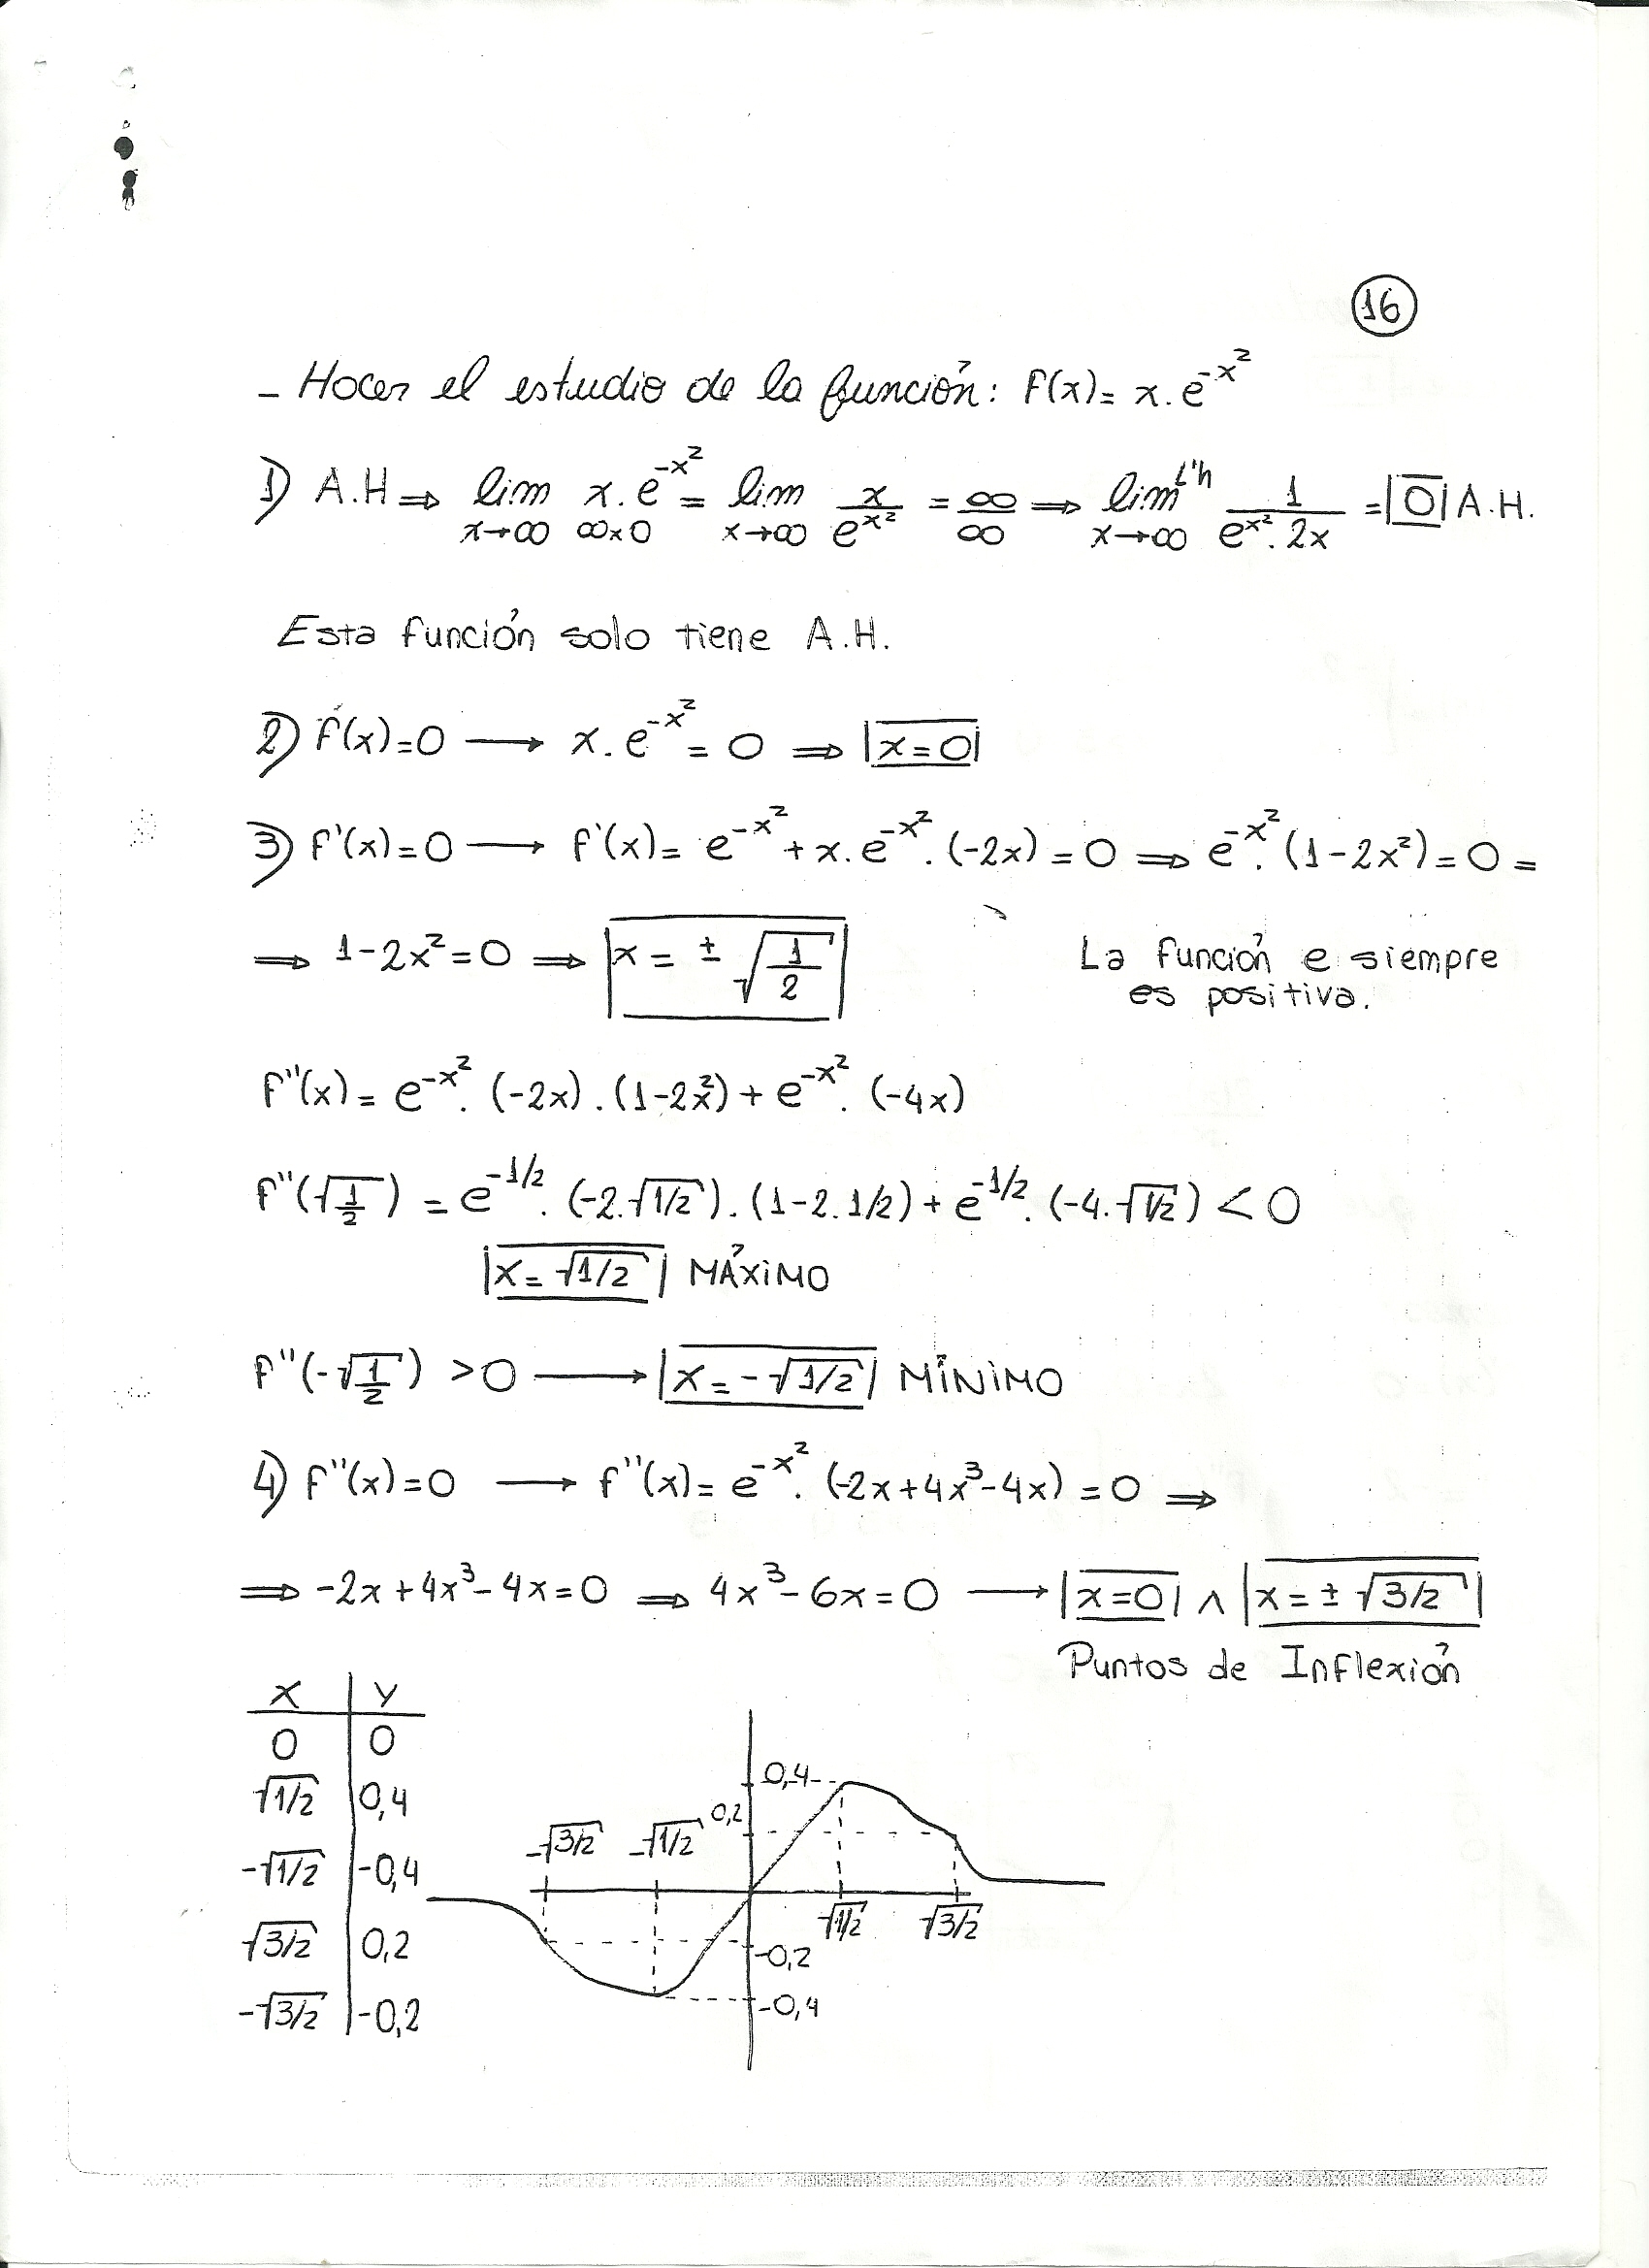 16
- Hacer el estudio de la función: f(x)= x.e^-x²
1) A.H ⇒ lim x.e^-x² = lim x/e^x² = ∞/∞ ⇒ lim L'h 1/(e^x².2x) = 0 A.H.
x→∞ ∞x0 x→∞ x→∞
Esta función solo tiene A.H.
2) f(x)=0 → x.e^-x² = 0 ⇒ x=0
3) f'(x)=0 → f'(x)= e^-x² + x.e^-x².(-2x) = 0 ⇒ e^-x².(1-2x²)=0 =
⇒ 1-2x²=0 ⇒ x = ± √(1/2)
La función e siempre
es positiva.
f''(x)= e^-x².(-2x).(1-2x²)+e^-x².(-4x)
f''(√(1/2)) = e^-1/2.(-2.√1/2).(1-2.1/2)+e^-1/2.(-4.√1/2) < 0
x=√1/2 MÁXIMO
f''(-√(1/2)) >0 → x=-√1/2 MÍNIMO
4) f''(x)=0 → f''(x)= e^-x².(-2x+4x³-4x) = 0 ⇒
⇒ -2x+4x³-4x=0 ⇒ 4x³-6x=0 → x=0 ∧ x=±√3/2
Puntos de Inflexión
x y
0 0
√1/2 0,4
-√1/2 -0,4
√3/2 0,2
-√3/2 -0,2
0,4
0,2
-√3/2 -√1/2
√1/2 √3/2
-0,2
-0,4